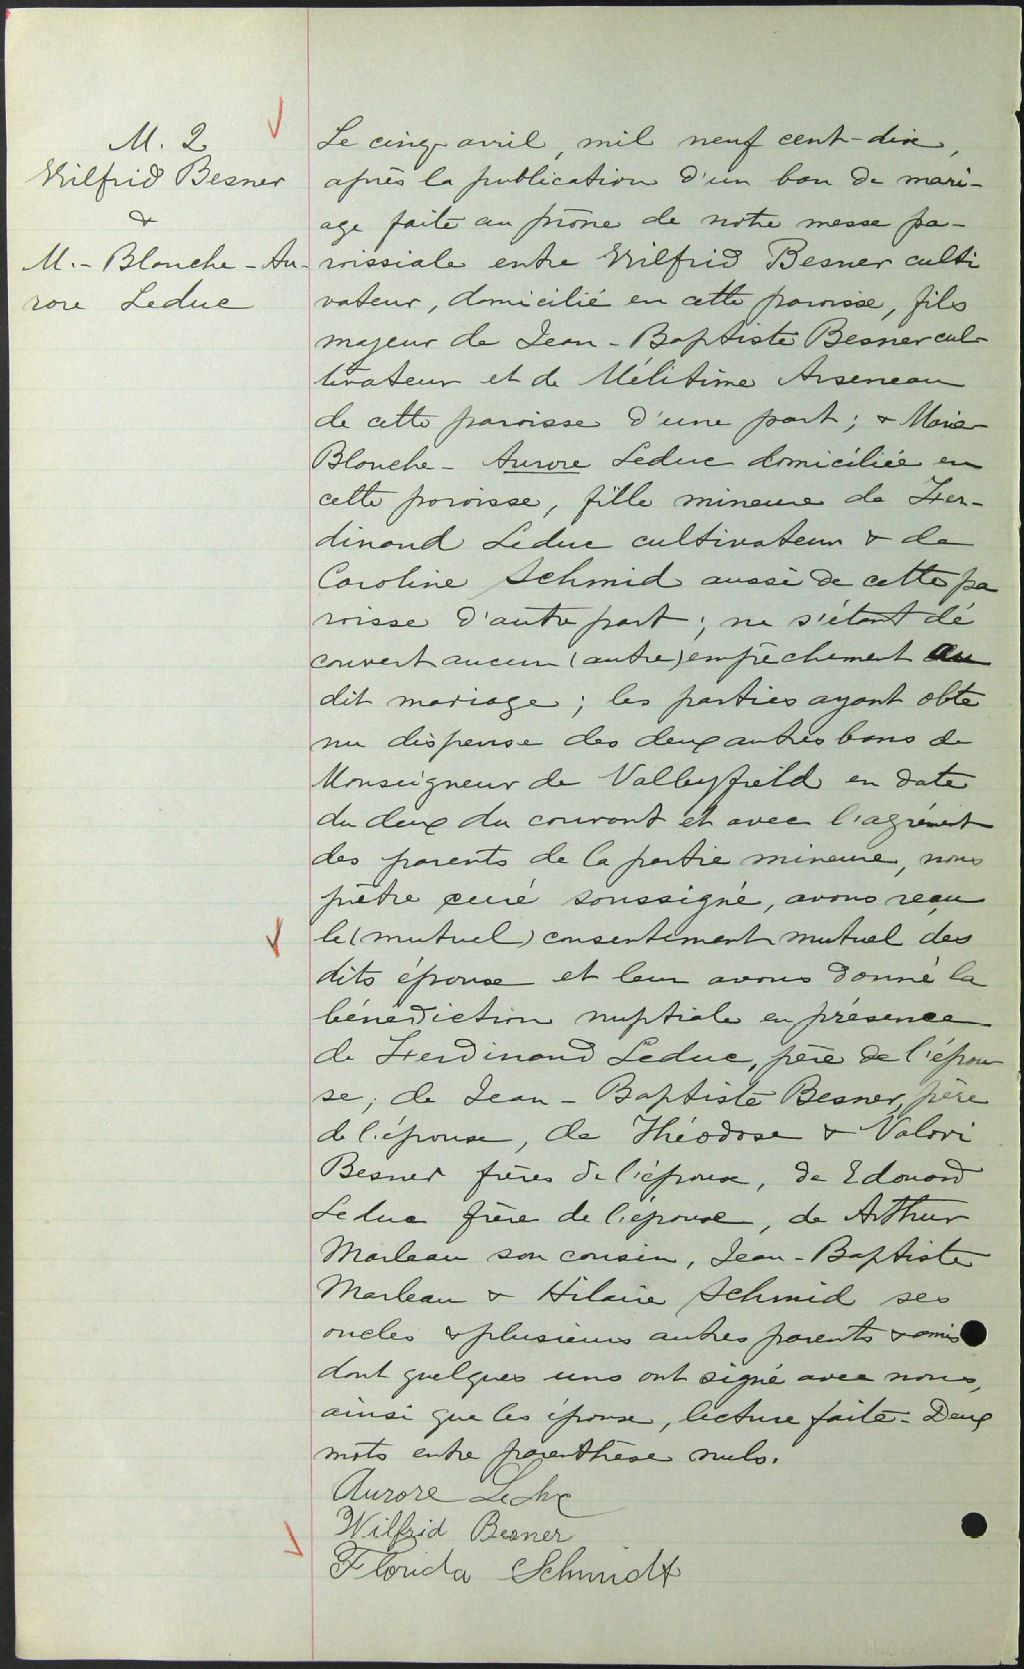 M. 2
Wilfrid Besner
&
M.- Blanche - Au-
rore Leduc
Le cinq avril, mil neuf cent-dix,
après la publication d'un ban de mari-
age faite au prône de notre messe pa-
roissiale entre Wilfrid Besner culti
vateur, domicilié en cette paroisse, fils
majeur de Jean - Baptiste Besner cul-
tivateur et de Mélitime Arseneau
de cette paroisse d'une part; & Marie
Blanche - Aurore Leduc domiciliée en
cette paroisse, fille mineure de Fer-
dinand Leduc cultivateur & de
Caroline Schmid aussi de cette pa
roisse d'autre part; ne s'étant dé
couvert aucun (autre) empêchement au
dit mariage; les parties ayant obte
nu dispense des deux autres bans de
Monseigneur de Valleyfield en date
du deux du courant et avec l'agrément
des parents de la partie mineure, nous
prêtre curé soussigné, avons reçu
le (mutuel) consentement mutuel des
dits époux et leur avons donné la
bénédiction nuptiale en présence
de Ferdinand Leduc, père de l'épou
se, de Jean - Baptiste Besner, père
de l'époux, de Théodose & Valori
Besner frères de l'époux, de Edouard
Leduc frère de l'épouse, de Arthur
Marleau son cousin, Jean-Baptiste
Marleau & Hilaire Schmid ses
oncles & plusieurs autres parents & amis
dont quelques uns ont signé avec nous,
ainsi que les époux, lecture faite - Deux
mots entre parenthèse nuls.
Aurore Leduc
Wilfrid Besner
Florida Schmidt